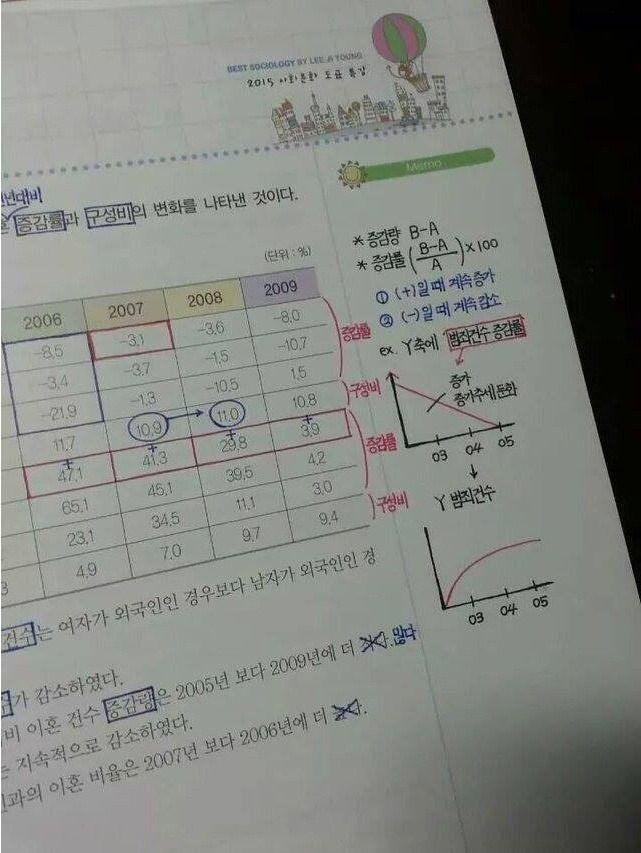 BEST SOCIOLOGY BY LEE JI YOUNG
2015 사회문화 도표 특강
Memo
년대비
증감률과 구성비의 변화를 나타낸 것이다.
(단위 : %)
2006 2007 2008 2009
-8.5 -3.1 -3.6 -8.0
-3.4 -3.7 -1.5 -10.7
-21.9 -1.3 -10.5 1.5
11.7 10.9 11.0 10.8
47.1 41.3 29.8 3.9
65.1 45.1 39.5 4.2
23.1 34.5 11.1 3.0
4.9 7.0 9.7 9.4
증감률
구성비
증감률
구성비
* 증감량 B-A
* 증감률 (B-A/A)×100
① (+)일 때 계속 증가
② (-)일 때 계속 감소
ex. Y축에 범죄건수 증감률
증가
증가추세 둔화
03 04 05
Y 범죄건수
03 04 05
건수는 여자가 외국인인 경우보다 남자가 외국인인 경
가 감소하였다.
비 이혼 건수 증감량은 2005년 보다 2009년에 더 많다
는 지속적으로 감소하였다.
인과의 이혼 비율은 2007년 보다 2006년에 더